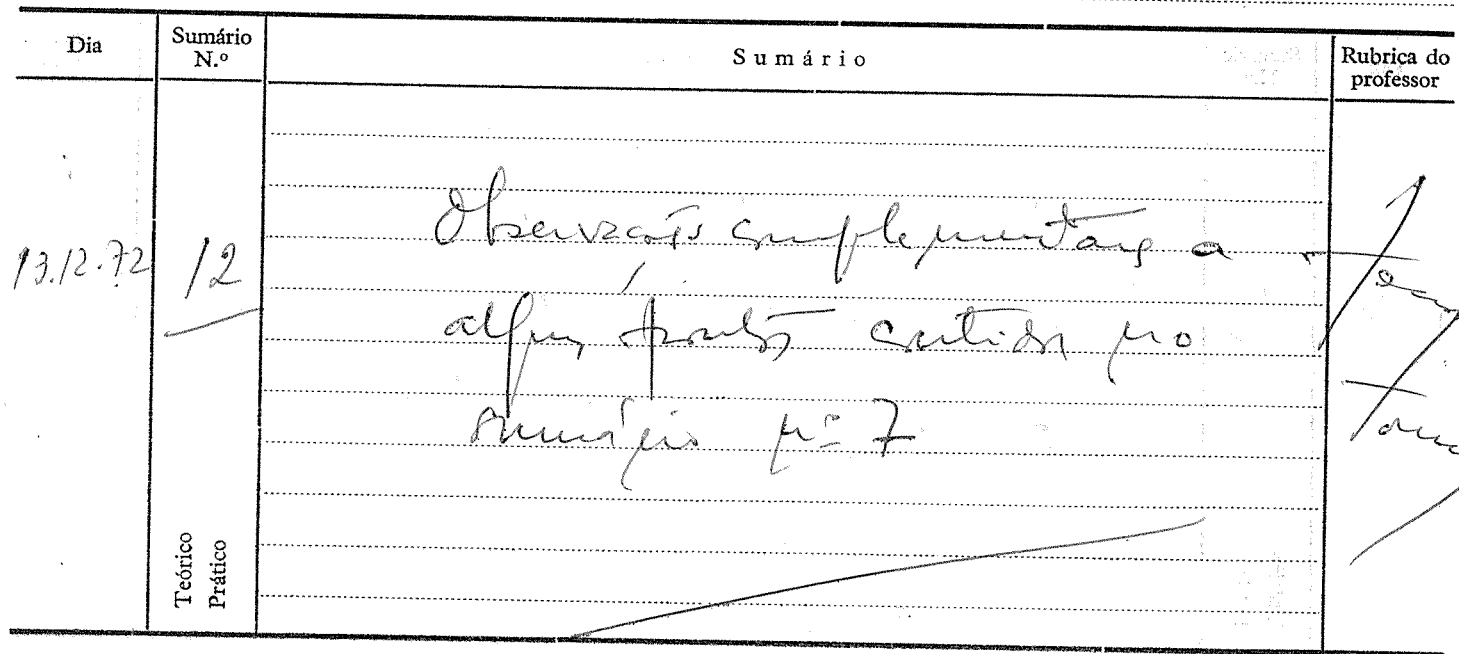 Dia
Sumário
N.º
Sumário
Rubrica do
professor
13.12.72
12
Observações complementares a
alguns pontos contidos no
sumário nº 7
Teórico
Prático